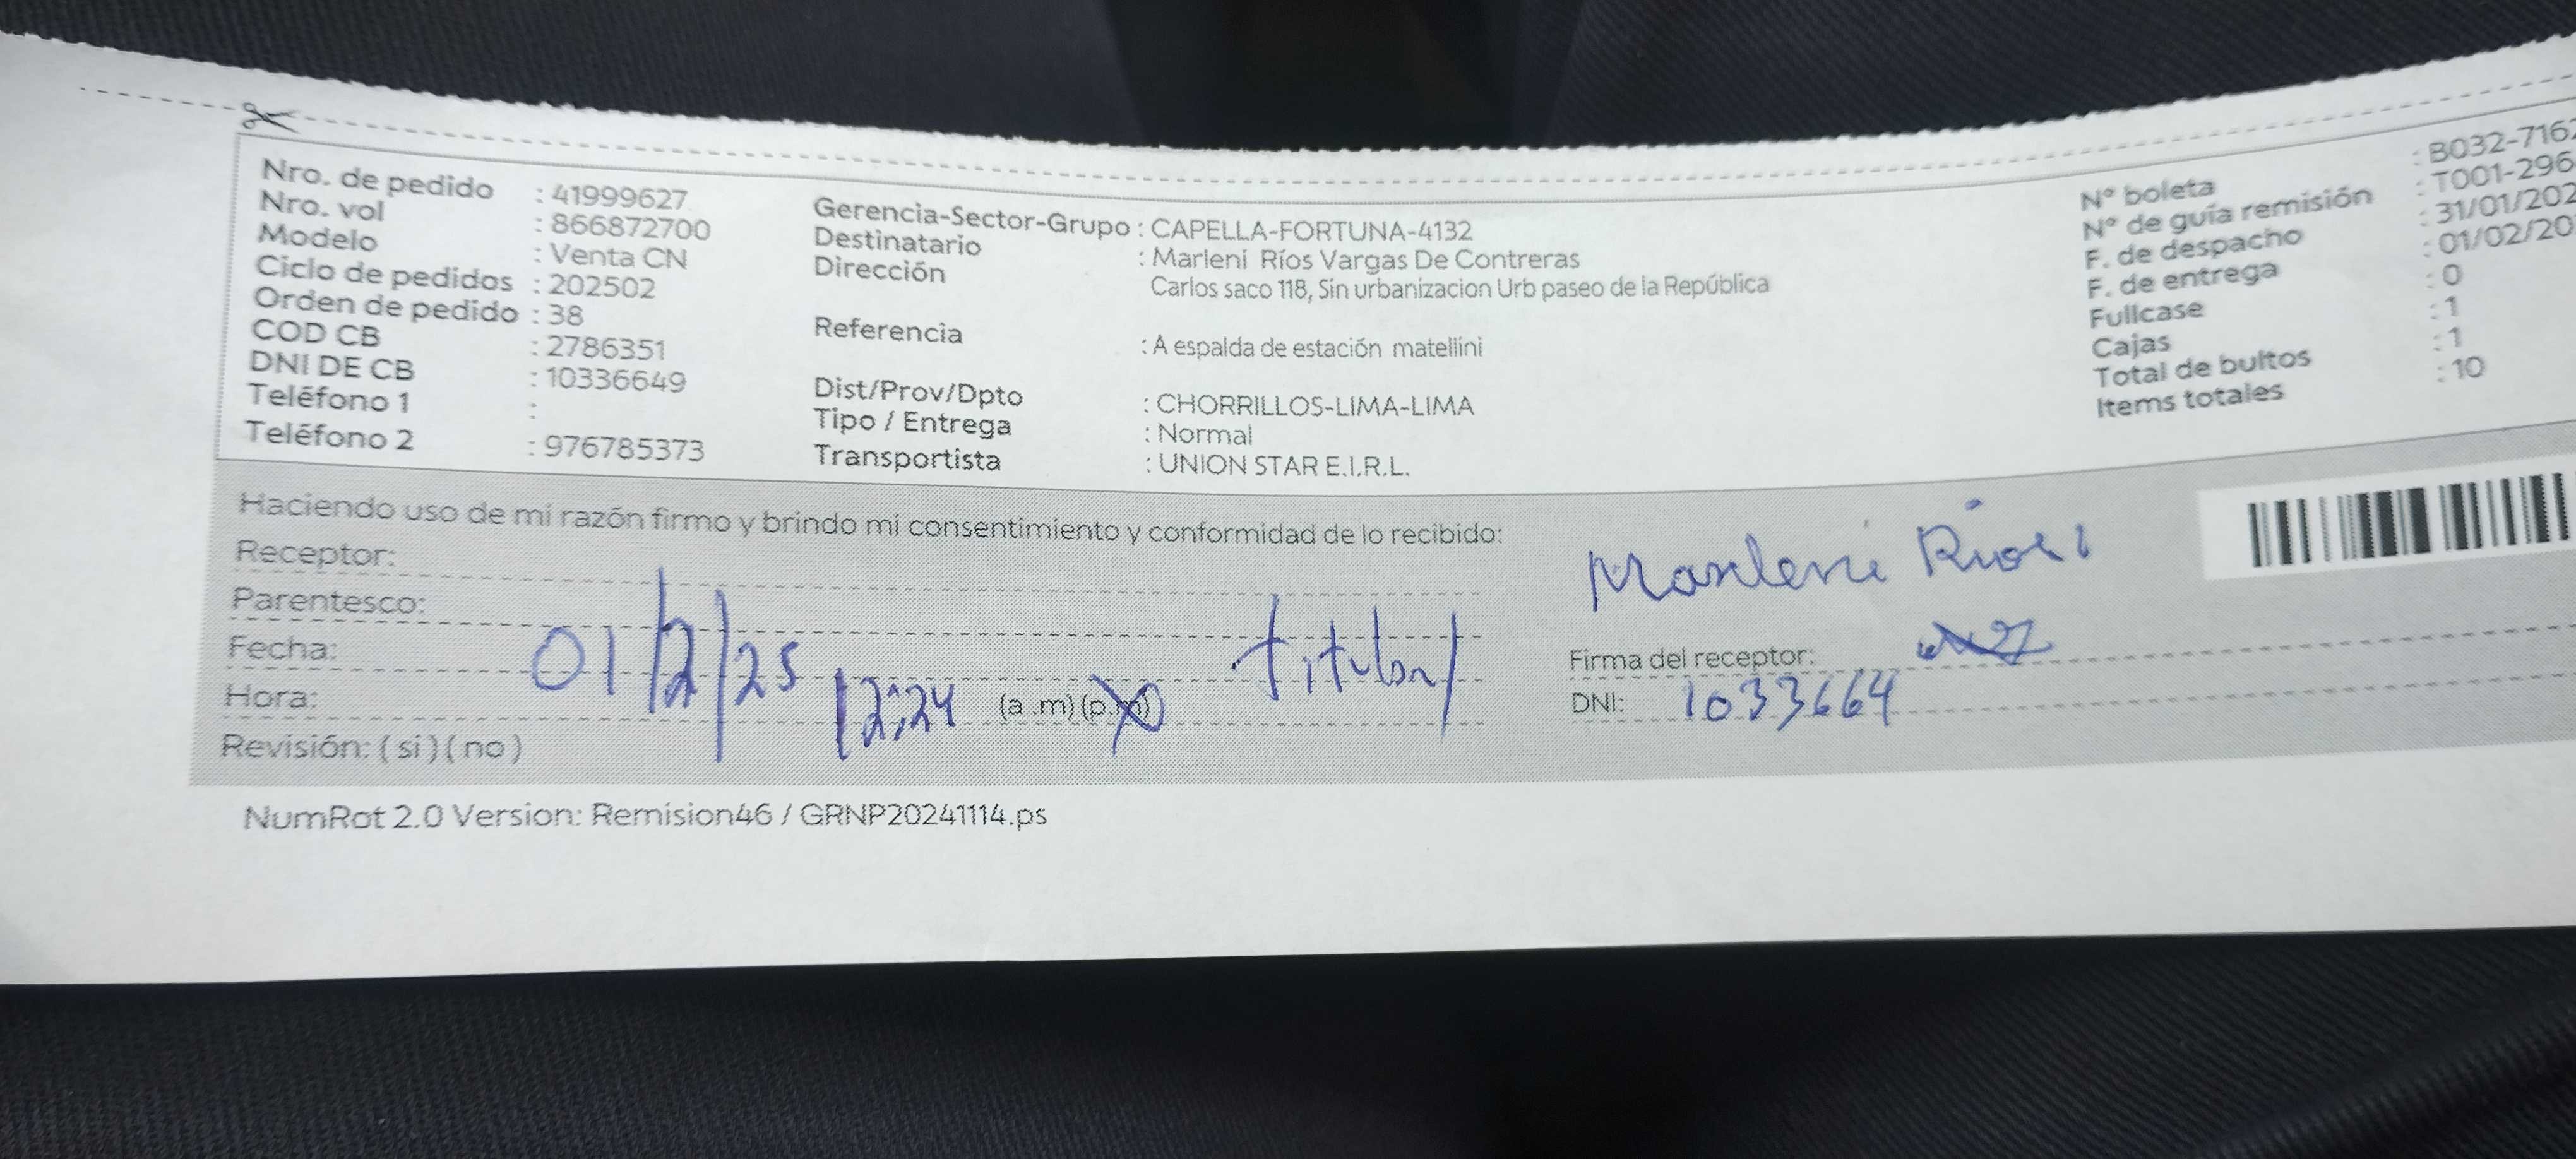 Nro. de pedido : 41999627
Nro. vol : 866872700
Modelo : Venta CN
Ciclo de pedidos : 202502
Orden de pedido : 38
COD CB : 2786351
DNI DE CB : 10336649
Teléfono 1 :
Teléfono 2 : 976785373
Gerencia-Sector-Grupo : CAPELLA-FORTUNA-4132
Destinatario : Marleni Ríos Vargas De Contreras
Dirección
Carlos saco 118, Sin urbanizacion Urb paseo de la República
Referencia : A espalda de estación matellini
Dist/Prov/Dpto : CHORRILLOS-LIMA-LIMA
Tipo / Entrega : Normal
Transportista : UNION STAR E.I.R.L.
N° boleta : B032-716
N° de guía remisión : T001-296
F. de despacho : 31/01/202
F. de entrega : 01/02/20
Fullcase : 0
Cajas : 1
Total de bultos : 1
Items totales : 10
Haciendo uso de mi razón firmo y brindo mi consentimiento y conformidad de lo recibido:
Receptor:
Parentesco:
Fecha: 01/2/25
Hora: 12:24 (a .m) (p.m)
titular
Revisión: ( si ) ( no )
Marleni Rios
Firma del receptor:
DNI: 1033664
NumRot 2.0 Version: Remision46 / GRNP20241114.ps